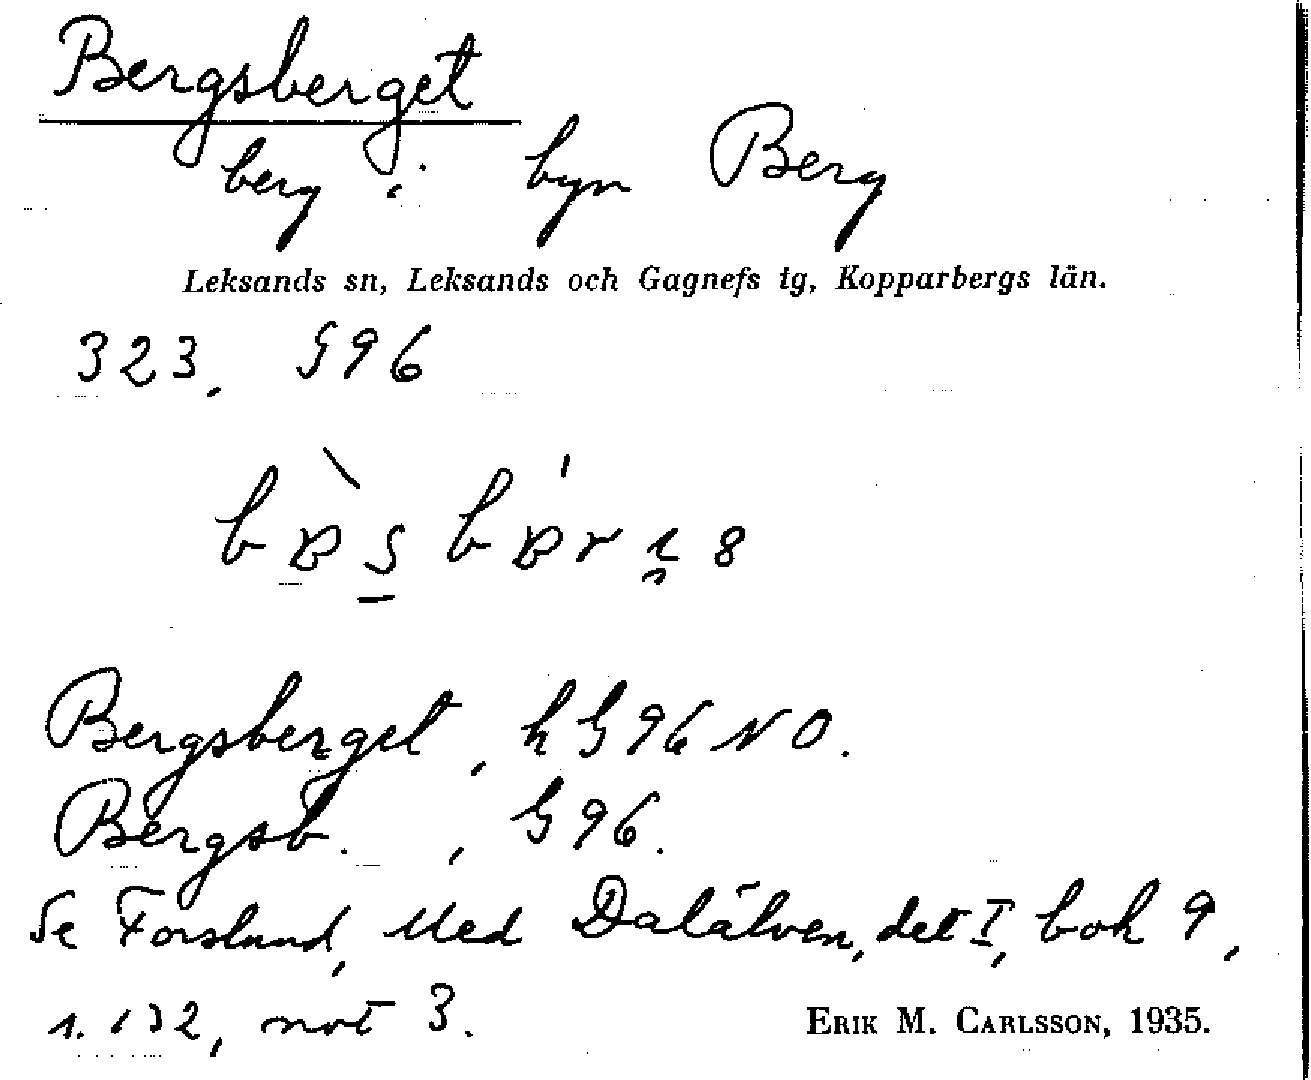 Bergsberget
berg i byn Berg
Leksands sn, Leksands och Gagnefs tg, Kopparbergs län.
323. G96
Bergsberget, h G96 NO.
Bergsb. , G96.
Se Forslund, Med Dalälven, del I, bok 9,
s. 132, not 3.
ERIK M. CARLSSON, 1935.